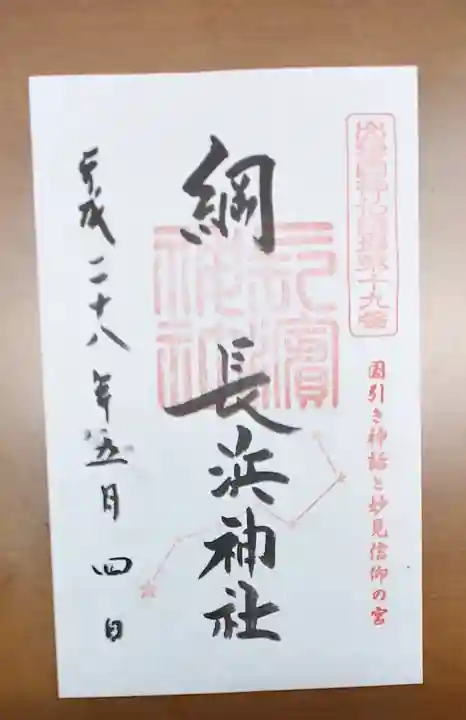 出雲國神仏霊場第十九番
国引き神話と妙見信仰の宮
綱 長浜神社
平成二十八年五月四日